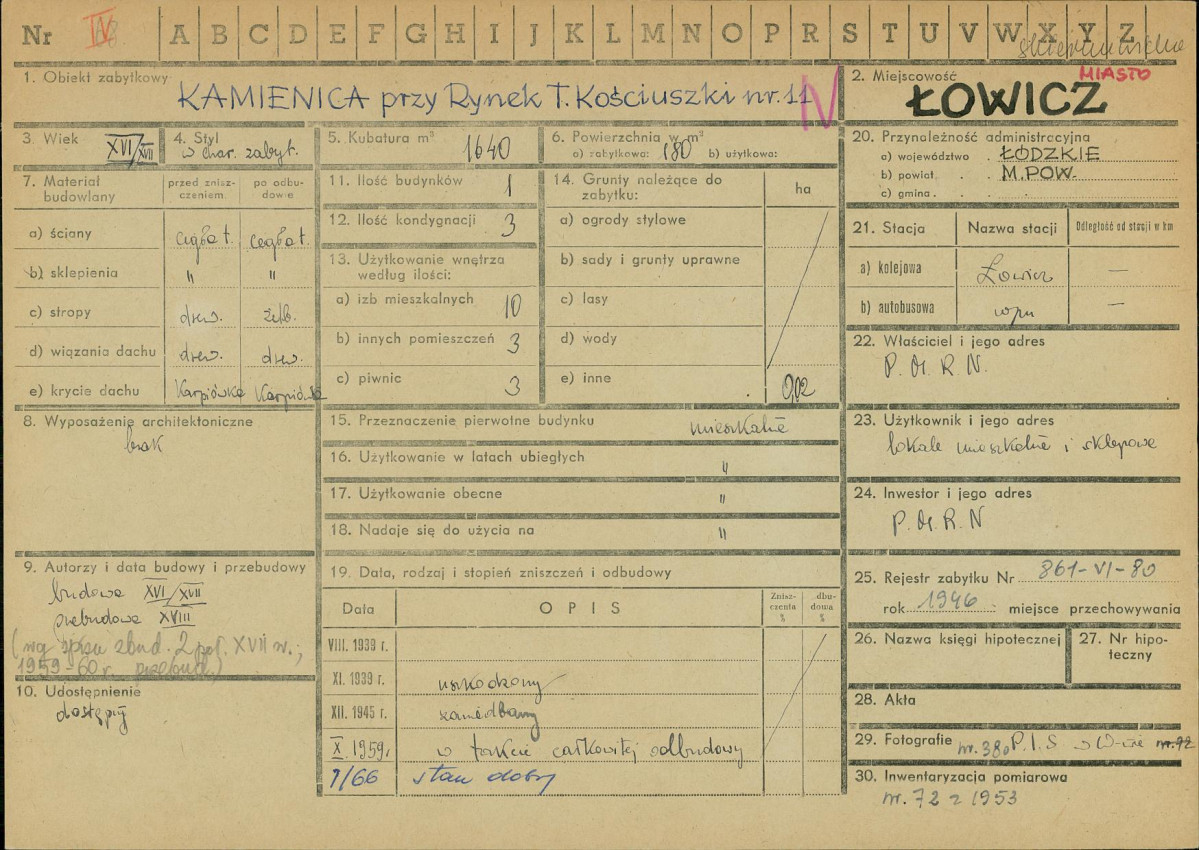 Nr IV A B C D E F G H I J K L M N O P R S T U V W X Y Z
skierniewickie
1. Obiekt zabytkowy
KAMIENICA przy Rynek T. Kościuszki nr. 11 IV
2. Miejscowość MIASTO
ŁOWICZ
3. Wiek XVI/XVII
4. Styl
w char. zabyt.
5. Kubatura m³ 1640
6. Powierzchnia w m²
a) zabytkowa: 180 b) użytkowa:
7. Materiał budowlany
przed zniszczeniem
po odbudowie
a) ściany cegła t. cegła t.
b) sklepienia " "
c) stropy drew. żelb.
d) wiązania dachu drew. drew.
e) krycie dachu Karpiówka Karpiówka
8. Wyposażenie architektoniczne
brak
9. Autorzy i data budowy i przebudowy
budowa XVI/XVII
przebudowa XVIII
(wg spisu zbud. 2 poł. XVII w.;
1959-60 r. przebud.)
10. Udostępnienie
dostępny
11. Ilość budynków 1
12. Ilość kondygnacji 3
13. Użytkowanie wnętrza
według ilości:
a) izb mieszkalnych 10
b) innych pomieszczeń 3
c) piwnic 3
14. Grunty należące do
zabytku: ha
a) ogrody stylowe
b) sady i grunty uprawne
c) lasy
d) wody
e) inne 0,02
15. Przeznaczenie pierwotne budynku mieszkalne
16. Użytkowanie w latach ubiegłych "
17. Użytkowanie obecne "
18. Nadaje się do użycia na "
19. Data, rodzaj i stopień zniszczeń i odbudowy
Data OPIS Zniszczenia % dbudowa %
VIII. 1939 r.
XI. 1939 r. uszkodzony
XII. 1945 r. zaniedbany
X. 1959 r. w trakcie całkowitej odbudowy
1/66 stan dobry
20. Przynależność administracyjna
a) województwo . ŁÓDZKIE
b) powiat . . M. POW.
c) gmina .
21. Stacja Nazwa stacji Odległość od stacji w km
a) kolejowa Łowicz —
b) autobusowa wpm —
22. Właściciel i jego adres
P. M. R. N.
23. Użytkownik i jego adres
lokale mieszkalne i sklepowe
24. Inwestor i jego adres
P. M. R. N
25. Rejestr zabytku Nr 861-VI-80
rok 1946 miejsce przechowywania
26. Nazwa księgi hipotecznej
27. Nr hipoteczny
28. Akta
29. Fotografie nr. 380 P.I.S. w W-wie nr. 72
30. Inwentaryzacja pomiarowa
nr. 72 z 1953